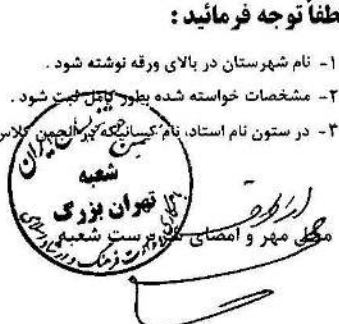 لطفاً توجه فرمائید :
۱- نام شهرستان در بالای ورقه نوشته شود .
۲- مشخصات خواسته شده بطور کامل ثبت شود .
۳- در ستون نام استاد، نام کسانیکه در انجمن کلاس
شعبه
تهران بزرگ
محل مهر و امضای سرپرست شعبه